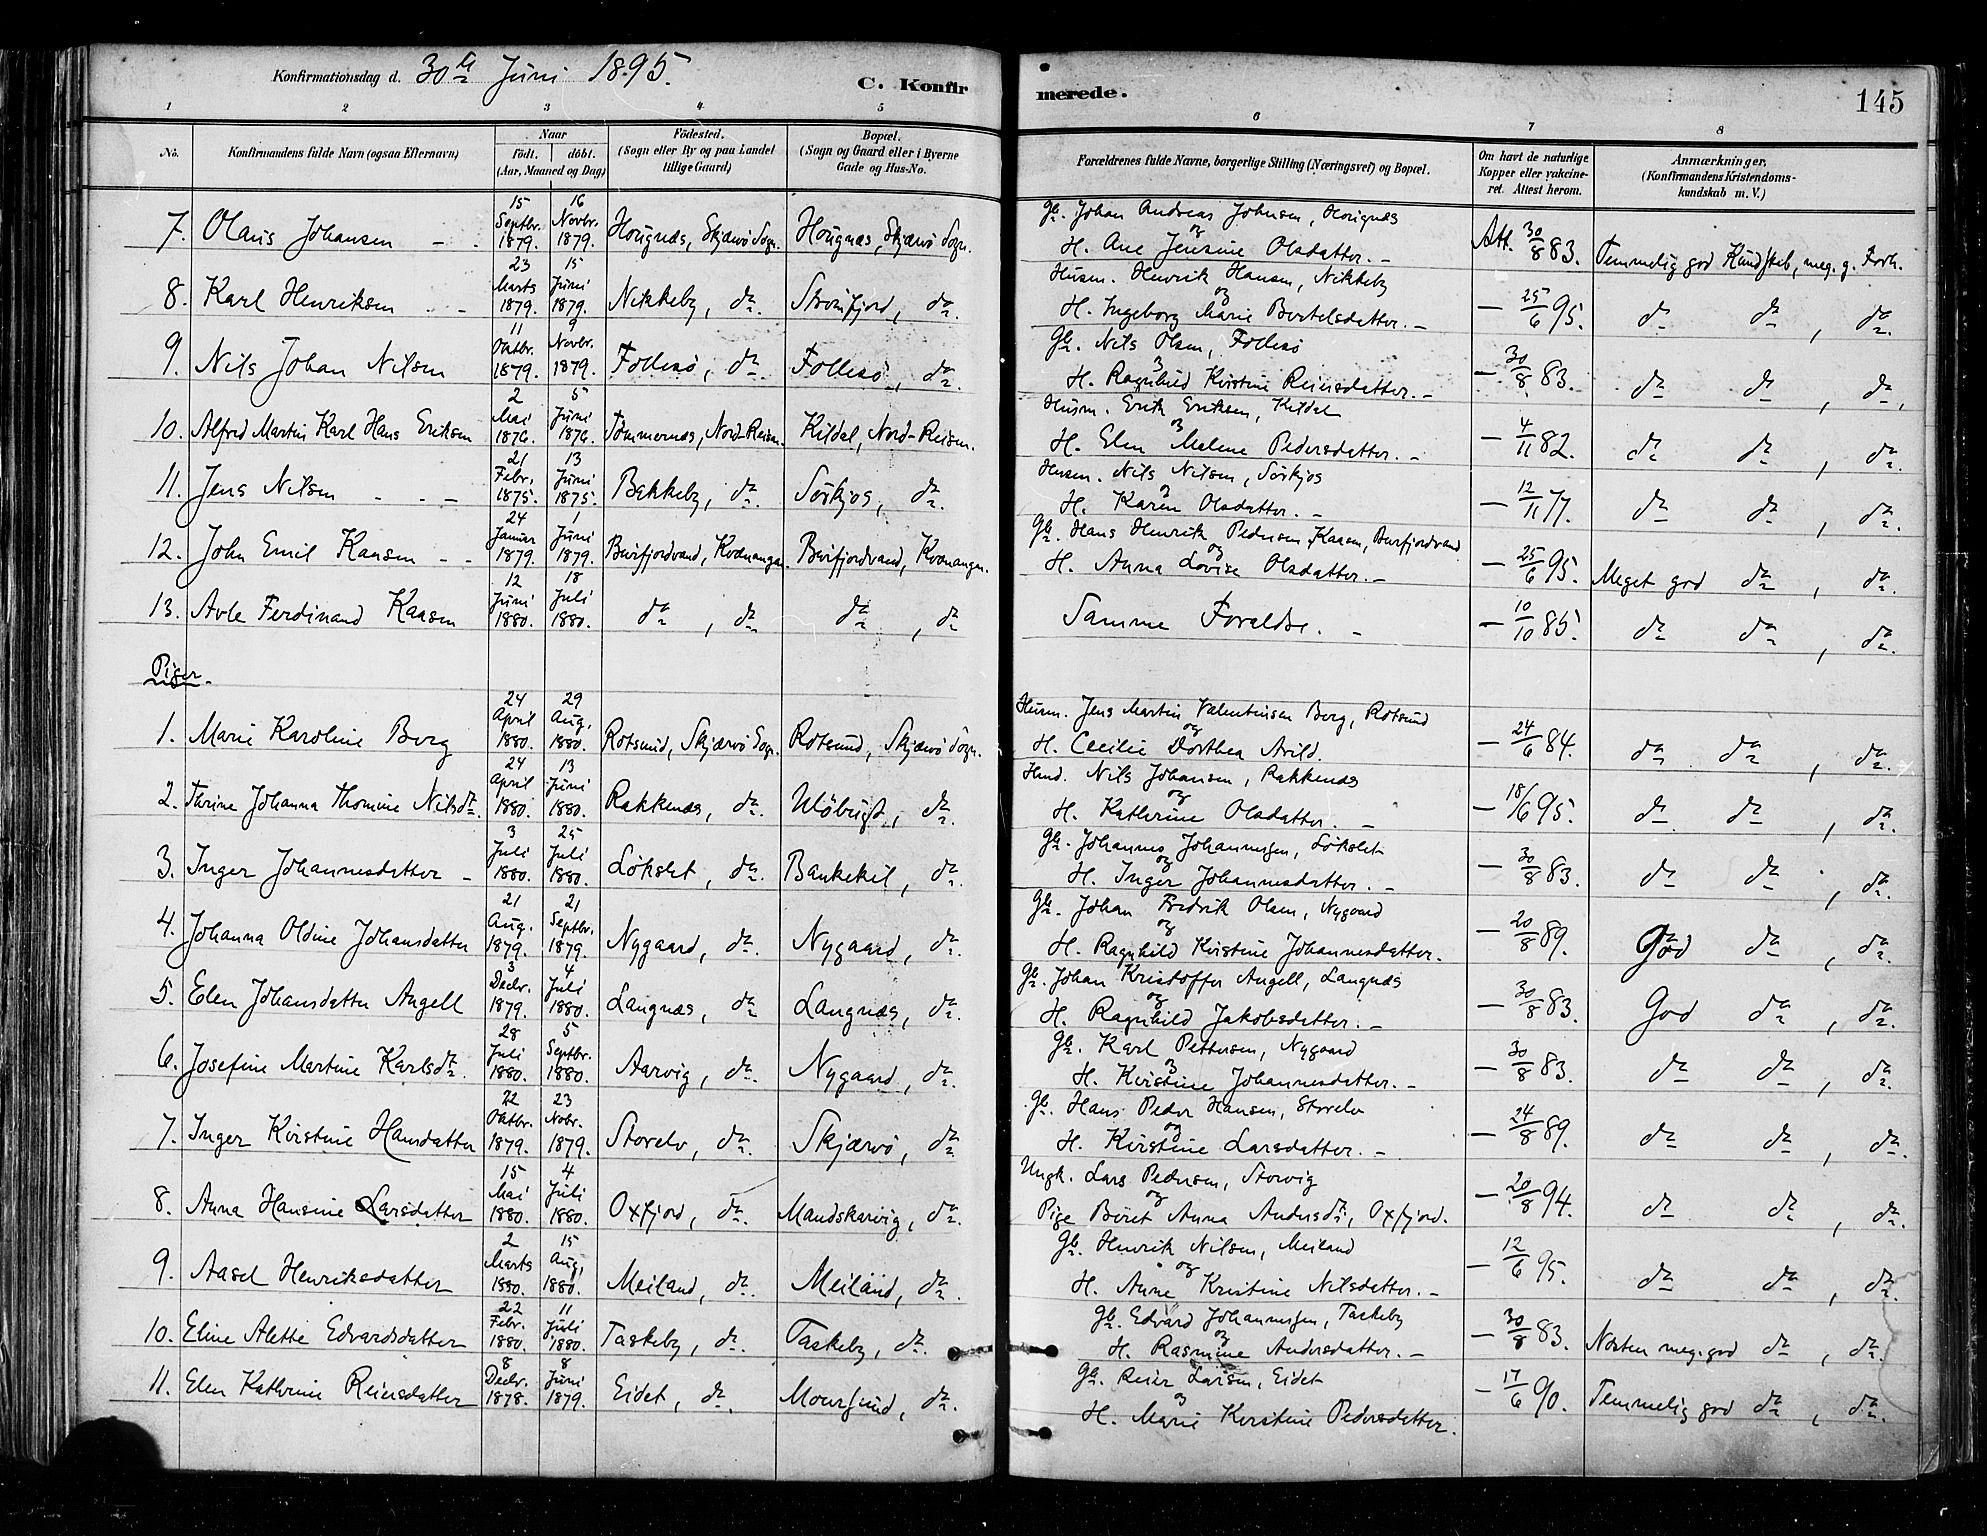 Konfirmationsdag d. 30te Juni 1895.
C. Konfirmerede.
145
1 2 3 4 5 6 7 8
No.
Konfirmandens fulde Navn (ogsaa Efternavn)
Naar
födt. döbt.
(Aar, Maaned og Dag)
Födested.
(Sogn eller By og paa Landet
tillige Gaard)
Bopæl.
(Sogn og Gaard eller i Byerne
Gade og Hus-No.
Forældrenes fulde Navne, borgerlige Stilling (Næringsvei) og Bopæl.
Om havt de naturlige
Kopper eller vakcine-
ret. Attest herom.
Anmærkninger,
(Konfirmandens Kristendoms-
kundskab m. V.)
7. Olaus Johansen 15 Septbr. 1879. 16 Novbr. 1879. Hougnæs, Skjærvö Sogn. Hougnæs, Skjærvö Sogn. Gb. Johan Andreas Johnsen, Hougnæs og H. Ane Jensine Olsdatter. Att. 30/8 83. Temmelig god Kundskab, meg. g. Forh.
8. Karl Henriksen 23 Marts 1879. 15 Juni 1879. Nikkeby, do. Straumfjord, do. Husm. Henrik Hansen, Nikkeby og H. Ingeborg Marie Bertelsdatter. 25/6 95. do do, do.
9. Nils Johan Nilsen 11 Oktbr. 1879. 9 Novbr. 1879. Follesö, do. Follesö, do. Gb. Nils Olsen, Follesö og H. Ragnhild Kirstine Reiersdatter. 30/8 83. do do, do.
10. Alfred Martin Karl Hans Eriksen 2 Mai 1876. 5 Juni 1876. Tömmernæs, Nord-Reisen. Kildal, Nord-Reisen. Husm. Erik Eriksen, Kildal og H. Elen Malene Pedersdatter. 4/11 82. do do, do.
11. Jens Nilsen 21 Febr. 1875. 13 Juni 1875. Bakkeby, do. Sörkjos, do. Husm. Nils Nilsen, Sörkjos og H. Karen Olsdatter. 12/11 77. do do, do.
12. John Emil Kaasen 24 Januar 1879. 1 Juni 1879. Burfjordvand, Kvænangen. Burfjordvand, Kvænangen. Gb. Hans Henrik Pedersen Kaasen, Burfjordvand og H. Anna Lovise Olsdatter. 25/6 95. Meget god do, do.
13. Avle Ferdinand Kaasen 12 Juni 1880. 18 Juli 1880. do, do do, do Samme Forældre. 10/10 85. do do, do.
Piger.
1. Marie Karoline Berg 24 April 1880. 29 Aug. 1880. Rotsund, Skjærvö Sogn. Rotsund, Skjærvö Sogn. Husm. Jens Martin Valentinsen Berg, Rotsund og H. Cecilie Dorthea Arild. 24/6 84. do do, do.
2. Thrine Johanna Thomine Nilsdt. 24 April 1880. 13 Juni 1880. Rakkenæs, do. Ulöbugt, do. Husm. Nils Johansen, Rakkenæs og H. Kathrine Olsdatter. 18/6 95. do do, do.
3. Inger Johannesdatter 3 Juli 1880. 25 Juli 1880. Lökslet, do. Bankekil, do. Gb. Johannes Johannesen, Lökslet og H. Inger Johannesdatter. 30/8 83. do do, do.
4. Johanna Oldine Johansdatter 21 Aug. 1879. 21 Septbr. 1879. Nygaard, do. Nygaard, do. Gb. Johan Fredrik Olsen, Nygaard og H. Ragnhild Kirstine Johannesdatter. 20/8 89. God do, do.
5. Elen Johansdatter Angell 3 Decbr. 1879. 4 Juli 1880. Langnæs, do Langnæs, do. Gb. Johan Kristoffer Angell, Langnæs og H. Ragnhild Jakobsdatter. 30/8 83. God do, do.
6. Josefine Martine Karlsdt. 28 Juli 1880. 5 Septbr. 1880. Aarvig, do. Nygaard, do. Gb. Karl Pettersen, Nygaard og H. Kirstine Johannesdatter. 30/8 83. do do, do.
7. Inger Kirstine Hansdatter 22 Oktbr. 1879. 23 Nobr. 1879. Storelv, do. Skjærvö, do. Gb. Hans Peder Hansen, Storelv og H. Kirstine Larsdatter. 24/8 89. do do, do.
8. Anna Hansine Larsdatter 15 Mai 1880. 4 Juli 1880. Oxfjord, do. Mandskarvig, do. Ungk. Lars Pedersen, Storvig og Pige Beret Anna Andersdt., Oxfjord. 20/8 94. do do, do.
9. Aasel Henriksdatter 2 Marts 1880. 15 Aug. 1880. Meiland, do. Meiland, do. Gb. Henrik Nilsen, Meiland og H. Anne Kristine Nilsdatter. 12/6 95. do do, do.
10. Eline Alette Edvardsdatter 22 Febr. 1880. 11 Juli 1880. Taskeby, do. Taskeby, do. Gb. Edvard Johannesen, Taskeby og H. Rasmine Andersdatter. 30/8 83. Næsten meg. god do, do.
11. Elen Kathrine Reiersdatter 8 Decbr. 1878. 8 Juni 1879. Eidet, do. Moursund, do. Gb. Reier Larsen, Eidet og H. Marie Kirstine Pedersdatter. 17/6 90. Temmelig god do, do.